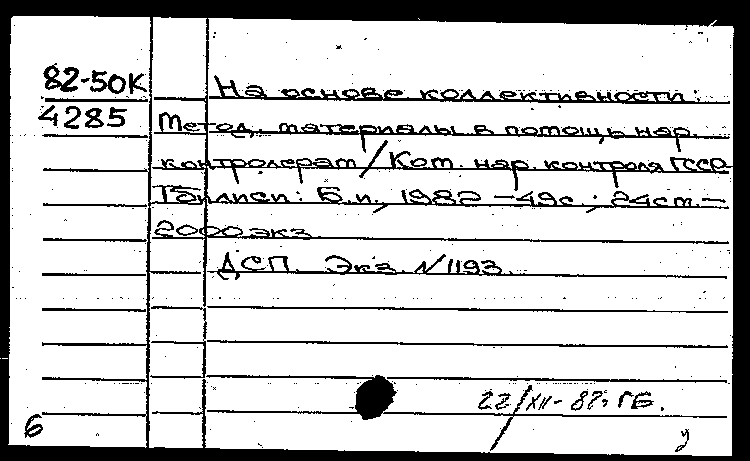 82-50К На основе коллективности:
4285 Метод. материалы в помощь нар.
контролерам / Ком. нар. контроля ГССР
Тбилиси: Б.и., 1982 – 49с.; 24см. –
2000экз.
ДСП. Экз. N1193.
22/XII- 87. ГБ.
6